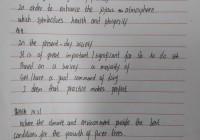 In order to enhance the joyous atmosphere
which symbolizes health and prosperity
In the present-day society
It is of great important / significant for sb to do sth
Based on a survey a majority of
Get / have a good command of
I deem that practice makes perfect
Where the climate and environment provide the best
conditions for the growth of trees